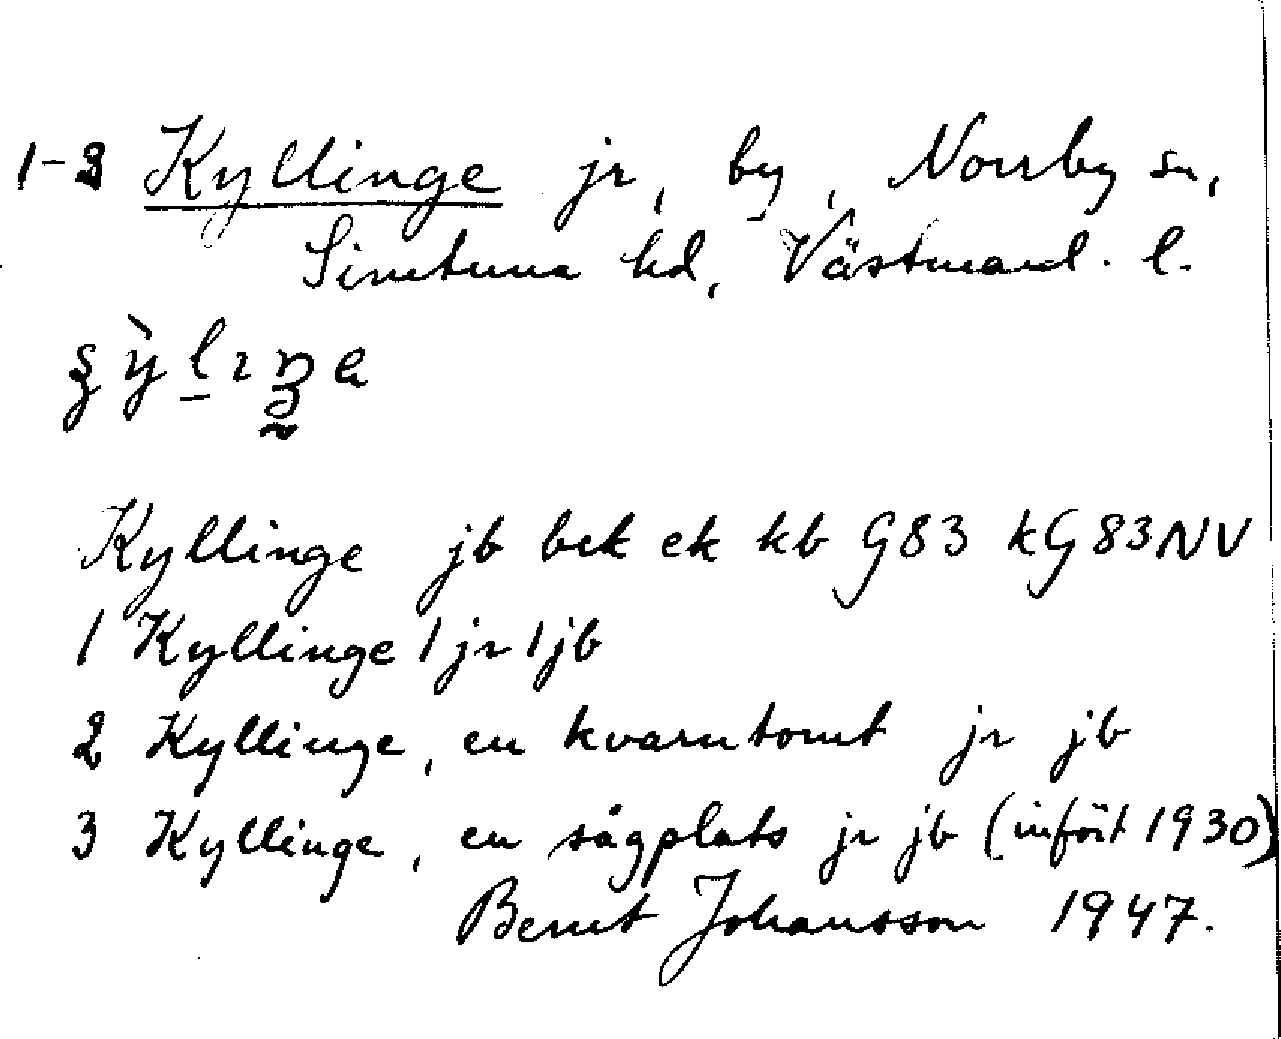 1-3 Kyllinge jr, by, Norrby sn,
Simtuna hd, Västmanl. l.
Kyllinge jb bek ek kb G83 kG83NV
1 Kyllinge 1 jr 1 jb
2 Kyllinge, en kvarntomt jr jb
3 Kyllinge, en sågplats jr jb (infört 1930)
Bernt Johansson 1947.